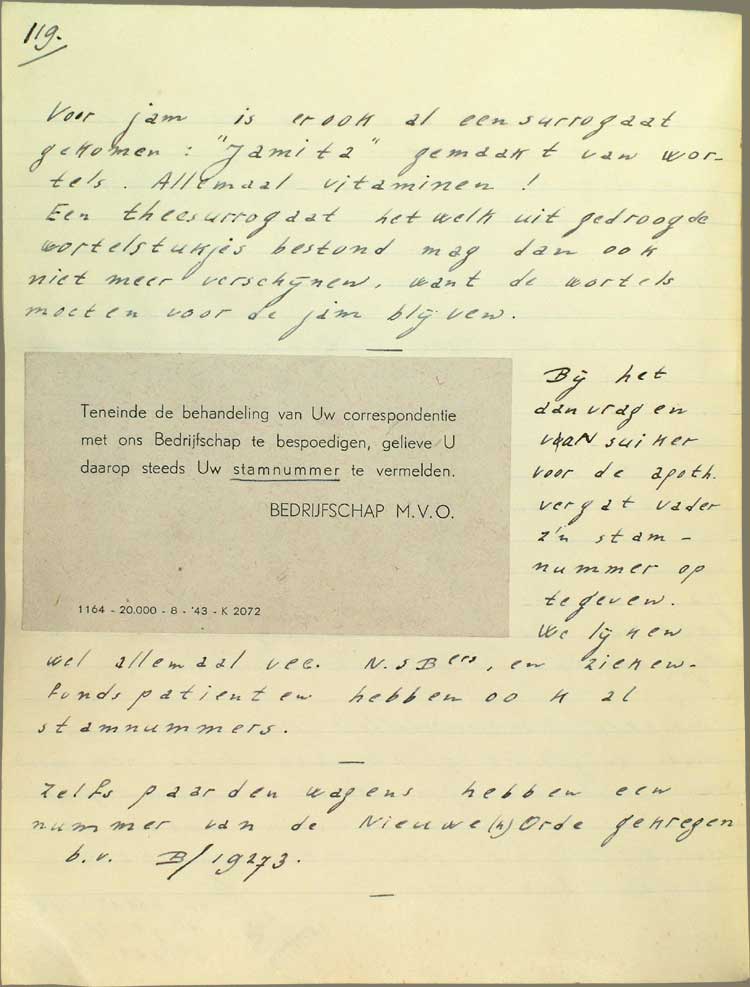 119.
Voor jam is er ook al een surrogaat
gekomen: "Jamita" gemaakt van wor-
tels. Allemaal vitaminen!
Een theesurrogaat hetwelk uit gedroogde
wortelstukjes bestond mag dan ook
niet meer verschijnen, want de wortels
moeten voor de jam blijven.
Teneinde de behandeling van Uw correspondentie
met ons Bedrijfschap te bespoedigen, gelieve U
daarop steeds Uw stamnummer te vermelden.
BEDRIJFSCHAP M.V.O.
1164 - 20.000 - 8 - '43 - K 2072
Bij het
aanvragen
van suiker
voor de apoth.
vergat vader
z'n stam-
nummer op
te geven.
We lijken
wel allemaal vee. N.S.Bers, en zieken-
fondspatienten hebben ook al
stamnummers.
Zelfs paardenwagens hebben een
nummer van de Nieuwe(n) Orde gekregen
b.v. B/19273.